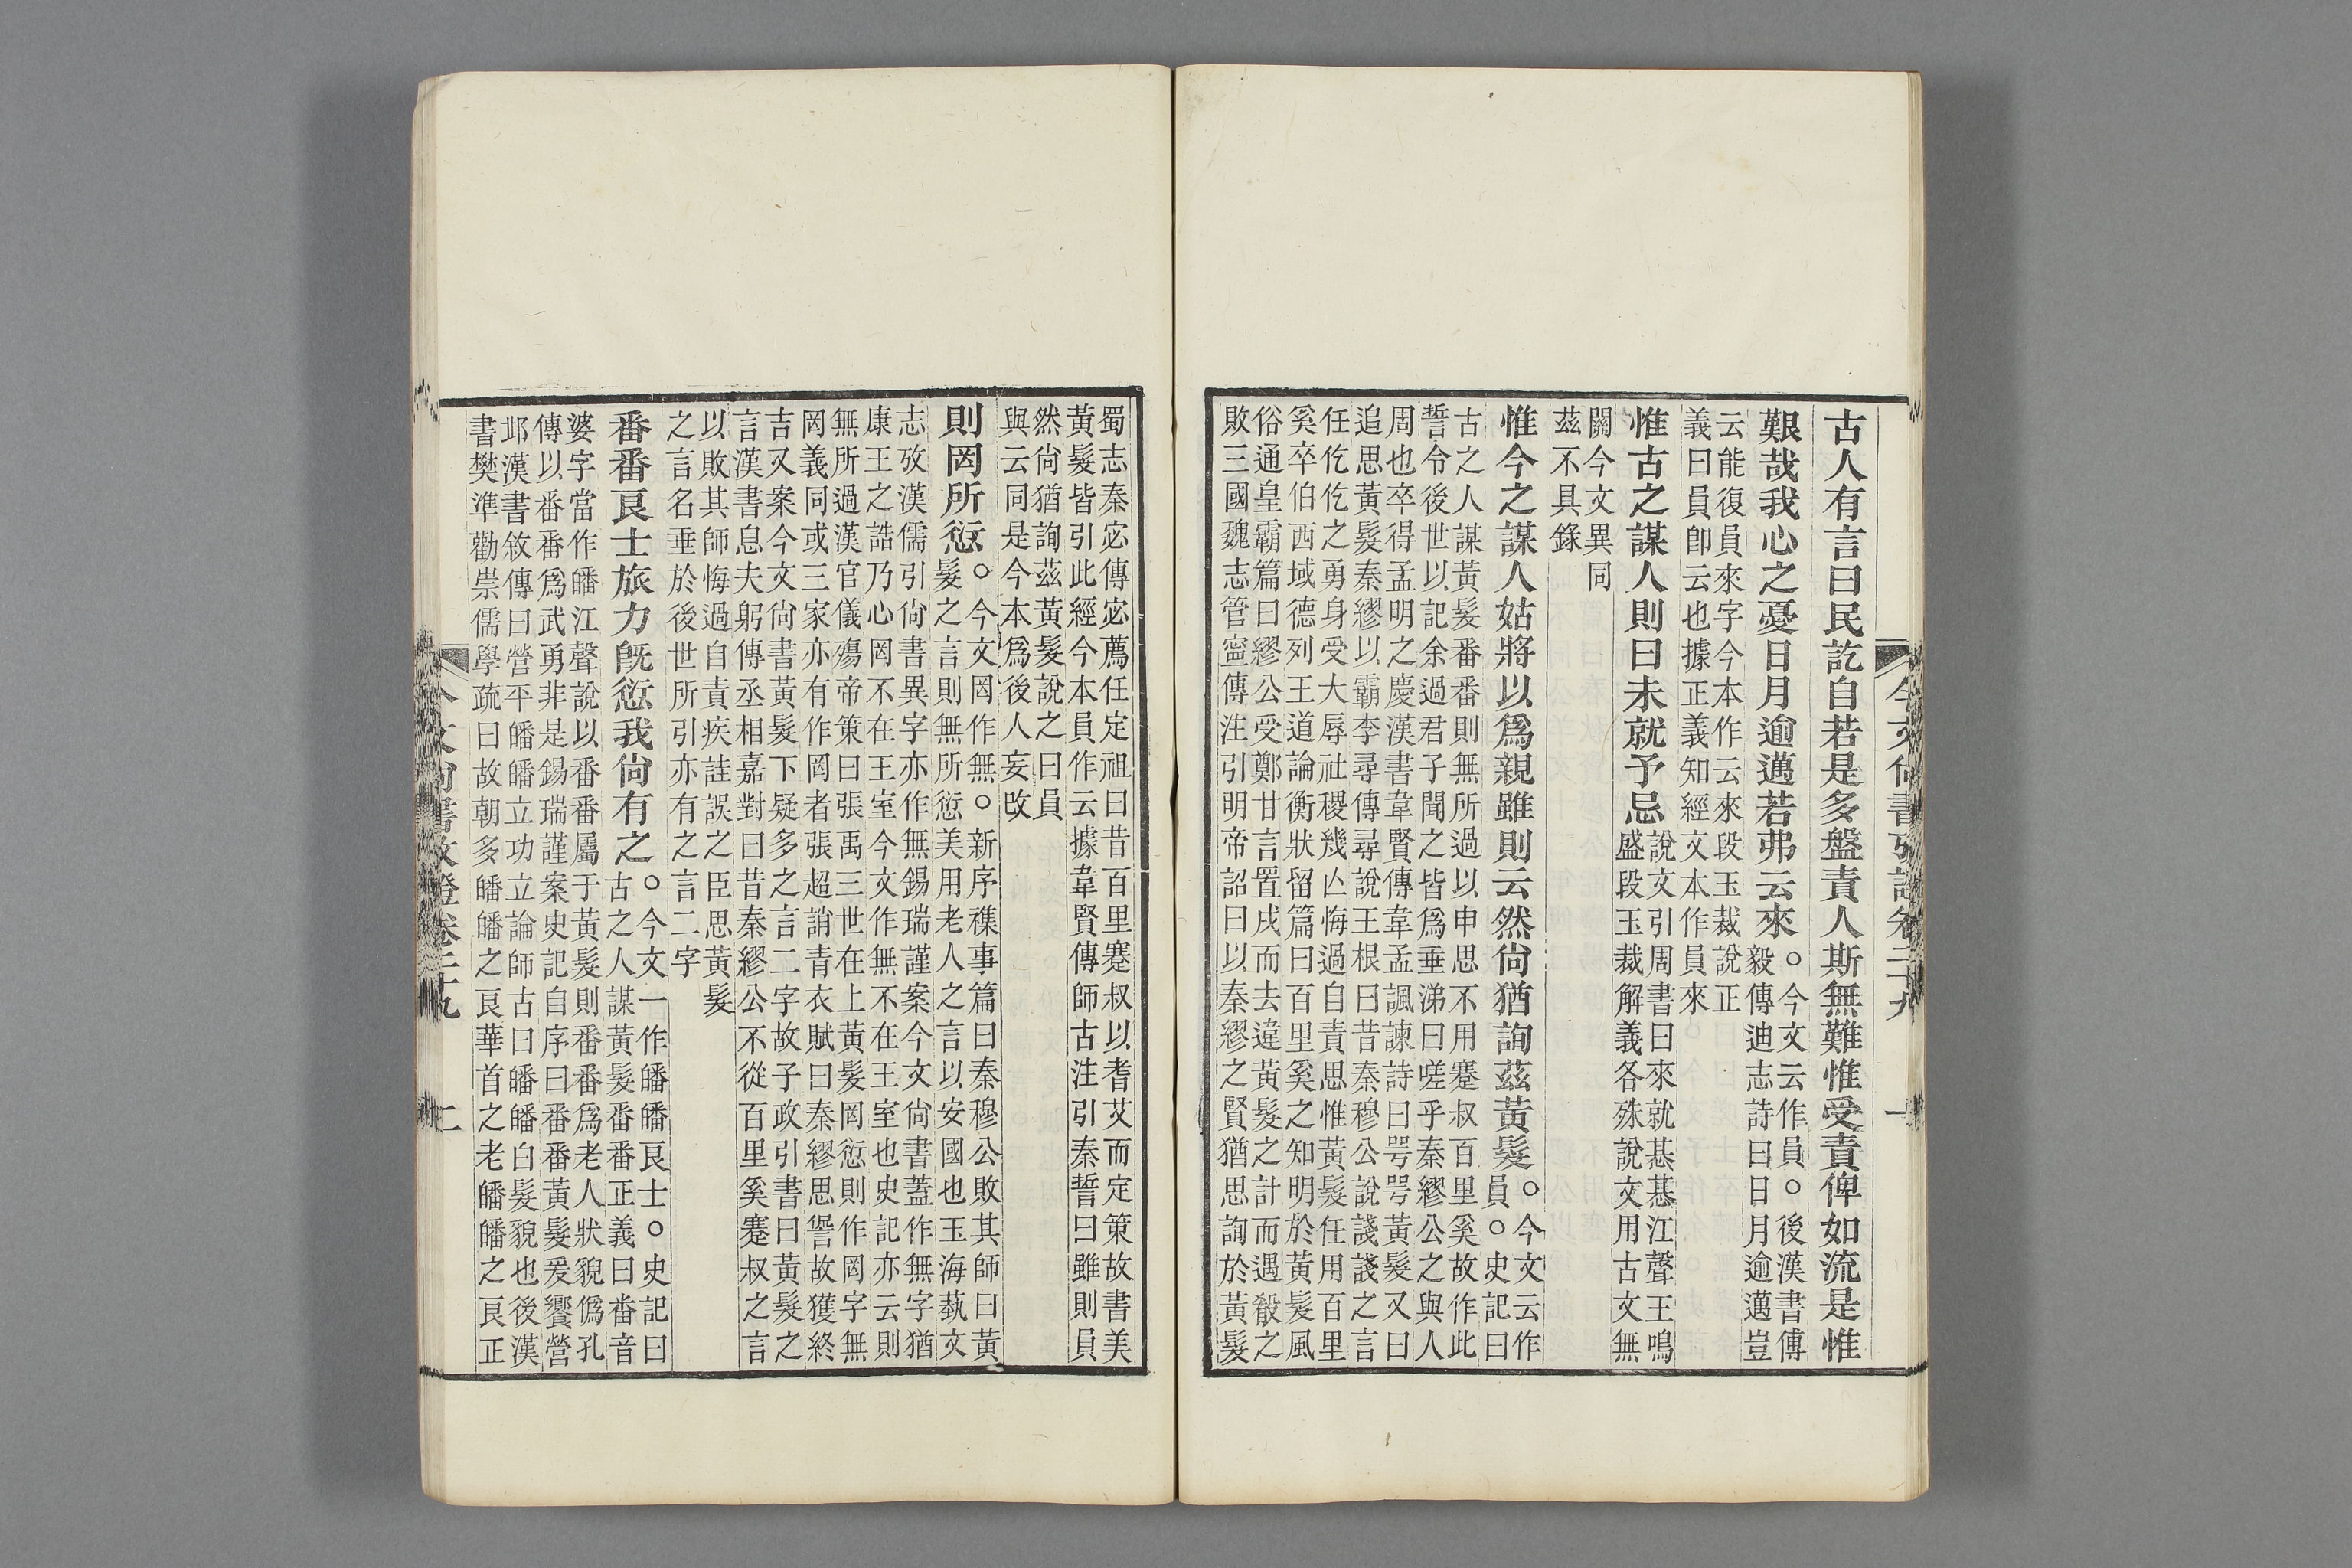 今文尙書攷證卷二十九　一
古人有言曰民訖自若是多盤責人斯無難惟受責俾如流是惟
艱哉我心之憂日月逾邁若弗云來。今文云作員。後漢書傅
毅傳迪志詩曰日月逾邁豈
云能復員來字今本作云來段玉裁說正
義曰員卽云也據正義知經文本作員來
惟古之謀人則曰未就予忌說文引周書曰來就惎惎江聲王鳴
盛段玉裁解義各殊說文用古文無
關今文異同
茲不具錄
惟今之謀人姑將以爲親雖則云然尙猶詢茲黃髮。今文云作
員。史記曰
古之人謀黃髮番番則無所過以申思不用蹇叔百里奚故作此
誓令後世以記余過君子聞之皆爲垂涕曰嗟乎秦繆公之與人
周也卒得孟明之慶漢書韋賢傳韋孟諷諫詩曰咢咢黃髮又曰
追思黃髮秦繆以霸李尋傳尋說王根曰昔秦穆公說諓諓之言
任仡仡之勇身受大辱社稷幾亾悔過自責思惟黃髮任用百里
奚卒伯西域德列王道論衡狀留篇曰百里奚之知明於黃髮風
俗通皇霸篇曰繆公受鄭甘言置戍而去違黃髮之計而遇殽之
敗三國魏志管寧傳注引明帝詔曰以秦繆之賢猶思詢於黃髮
蜀志秦宓傳宓薦任定祖曰昔百里蹇叔以耆艾而定策故書美
黃髮皆引此經今本員作云據韋賢傳師古注引秦誓曰雖則員
然尙猶詢茲黃髮說之曰員
與云同是今本爲後人妄改
則罔所愆。今文罔作無。新序襍事篇曰秦穆公敗其師曰黃
髮之言則無所愆美用老人之言以安國也玉海蓺文
志攷漢儒引尙書異字亦作無錫瑞謹案今文尙書蓋作無字猶
康王之誥乃心罔不在王室今文作無不在王室也史記亦云則
無所過漢官儀殤帝策曰張禹三世在上黃髮罔愆則作罔字無
罔義同或三家亦有作罔者張超誚青衣賦曰秦繆思諐故獲終
吉又案今文尙書黃髮下疑多之言二字故子政引書曰黃髮之
言漢書息夫躬傳丞相嘉對曰昔秦繆公不從百里奚蹇叔之言
以敗其師悔過自責疾詿誤之臣思黃髮
之言名垂於後世所引亦有之言二字
番番良士旅力旣愆我尙有之。今文一作皤皤良士。史記曰
古之人謀黃髮番番正義曰番音
婆字當作皤江聲說以番番屬于黃髮則番番爲老人狀貌僞孔
傳以番番爲武勇非是錫瑞謹案史記自序曰番番黃髮爰饗營
邶漢書敘傳曰營平皤皤立功立論師古曰皤皤白髮貌也後漢
書樊準勸崇儒學疏曰故朝多皤皤之良華首之老皤皤之良正
今文尙書攷證卷二十九　二